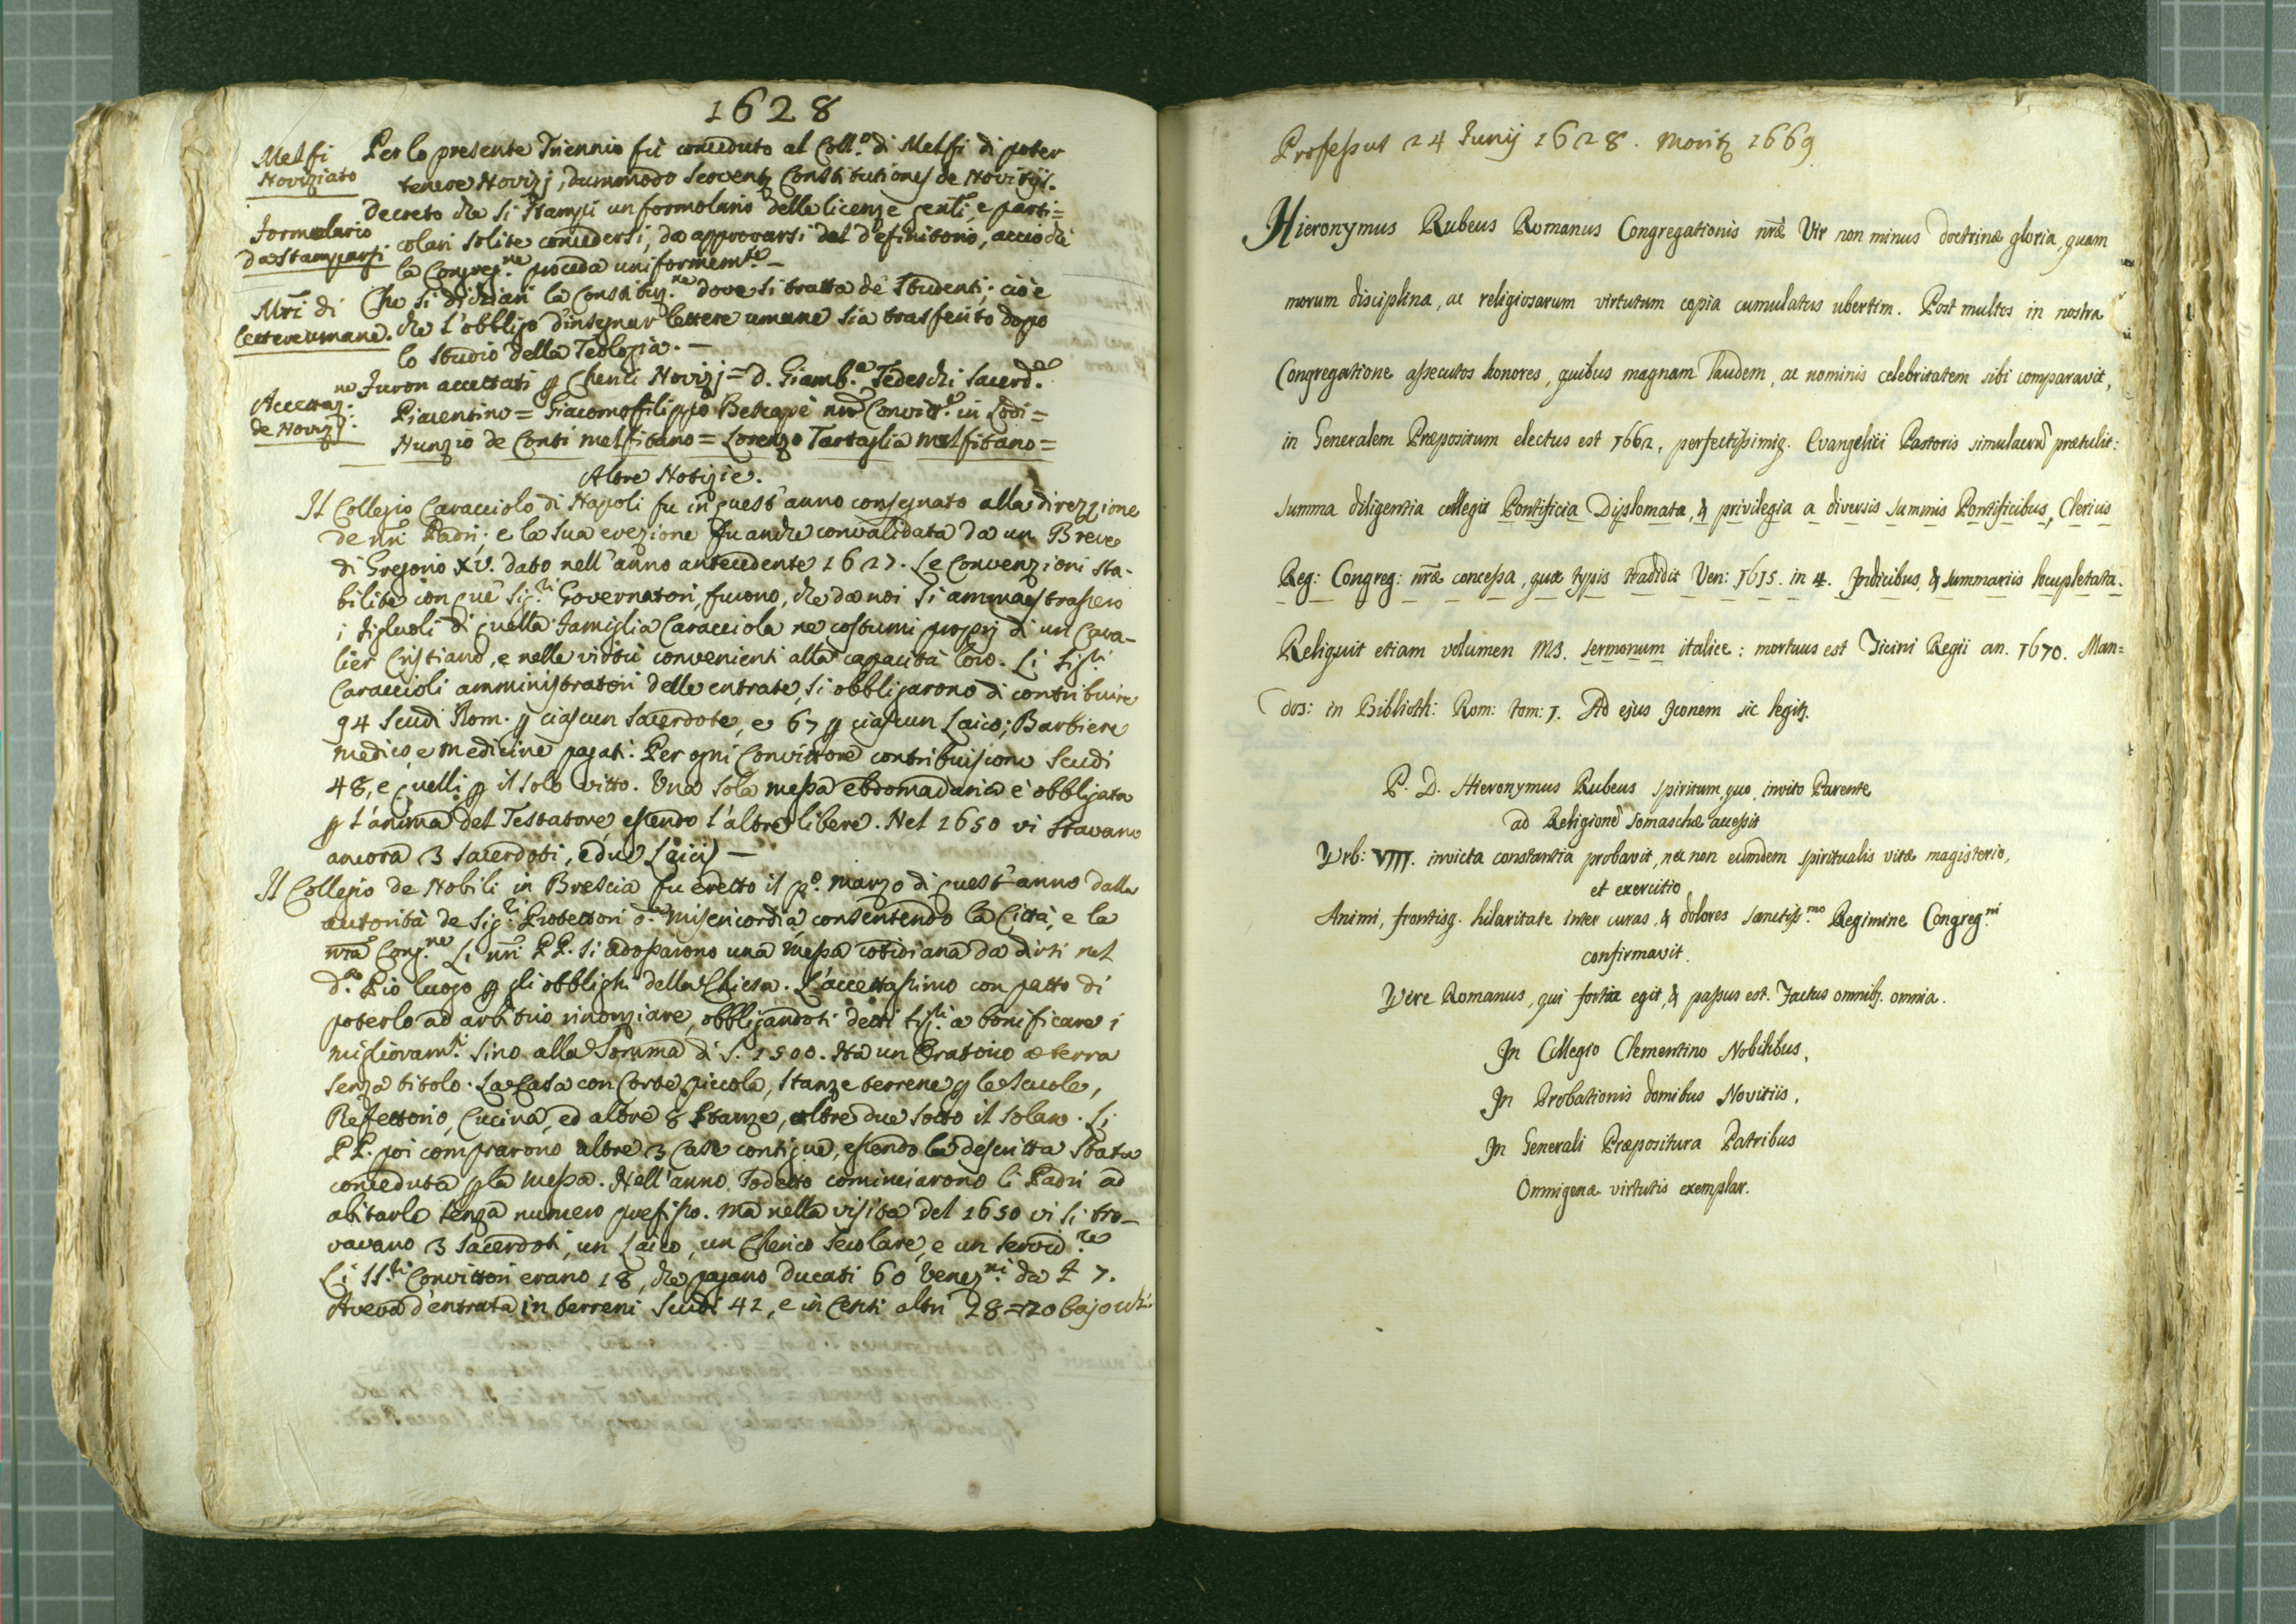 1628
Melfi
Noviziato
Per lo presente Triennio fù conceduto al Coll.o di Melfi di poter
tenere Novizj, dummodo servent Constitutiones de Novitijs.
Formulario
da Stamparsi
Decreto che si stampi un formolario delle licenze gen̅li, e parti=
colari solite concedersi, da approvarsi dal Definitorio, acciochè
la Congreg.ne proceda uniformem.te —
Mr̅i di
lettere umane.
Che si dichiari la Constituz.ne dove si tratta de Studenti; cioè
che l'obbligo d'insegnar lettere umane sia trasferito dopo
lo studio della Teologia. —
Accettaz.ne
de Novizj.
Furon accettati ꝑ Cherici Novizj = D. Giamb.a Tedeschi Sacerd.e
Piacentino = Giacomofilippo Betcapè nr̅o Convitt.e in Lodi =
Nunzio de Conti melfitano = Lorenzo Tartaglia melfitano =
Altre Notizie.
Il Collegio Caracciolo di Napoli fu in quest'anno consegnato alla direzzione
de nr̅i Padri; e la sua erezione fu anche convalidata da un Breve
di Gregorio XV. dato nell'anno antecedente 1627. Le Convenzioni sta-
bilite con que' Sig.ri Governatori, furono, che da noi si ammaestrassero
i figluoli di quella famiglia Caracciola ne costumi proprj di un Cava-
lier Cristiano, e nelle virtù convenienti alla capacità loro. Li Sig.ri
Caraccioli amministratori delle entrate, si obbligarono di contribuire
94 scudi Rom. ꝑ ciascun Sacerdote, e 67 ꝑ ciascun Laico; Barbiere
medico e medicine pagati. Per ogni Convittore contribuiscono Scudi
48, e quelli ꝑ il solo vitto. Una sola messa ebdomadaria è obbligata
ꝑ l'anima del Testatore essendo l'altre libere. Nel 1650 vi stavano
ancora 3 Sacerdoti, e due Laici) —
Il Collegio de Nobili in Brescia fu eretto il p.o marzo di quest'anno dalla
autorità de Sig.ri Protettori d.a Misericordia, consentendo la Città, e la
nr̅a Cong.ne Li nr̅i PP. si adossarono una messa cotidiana da dirsi nel
d.o Pio luogo ꝑ gli obblighi della Chiesa. L'accettassimo con patto di
poterlo ad arbitrio rinonziare, obbligandosi detti Sig.ri a bonificare i
miglioram.ti sino alla Somma di S. 1500. Ha un Oratorio a terra
senza titolo. La Casa con Corte piccola, stanze terrene ꝑ le Scuole,
Refettorio, Cucina, ed altre 8 stanze, oltre due sotto il solaro. Li
PP. poi comprarono altre 3 Case contigue, essendo la descritta stata
conceduta ꝑ la messa. Nell'anno sodetto cominciarono li Padri ad
abitarla senza numero prefisso. Ma nella visita del 1650 vi si tro-
vavano 3 Sacerdoti, un Laico, un Cherico Secolare, e un servid.re
Li SS.ri Convittori erano 18, che pagano Ducati 60 Venez.ni da £ 7.
Aveva d'entrata in terreni Scudi 42, e in Censi altri 28 = 20 bajocchi
Professus 24 Junij 1628. Moritꝫ 1669
Hieronymus Rubeus Romanus Congregationis nr̅æ Vir non minus doctrinæ gloria, quam
morum disciplina, ac religiosarum virtutum copia cumulatus ubertim. Post multos in nostra
Congregatione assecutos honores, quibus magnam laudem, ac nominis celebritatem sibi comparavit,
in Generalem Præpositum electus est 1662, perfectissimiq. Evangelici Pastoris simulacru̅ prætulit:
summa diligentia collegit Pontificia Diplomata, & privilegia a diversis summis Pontificibus, Clericis
Reg: Congreg: nr̅æ concessa, quæ typis tradidit Ven: 1615. in 4. Indicibus, & summariis locupletata.
Reliquit etiam volumen MS. sermonum italice: mortuus est Ticini Regii an. 1670. Man=
dos: in Biblioth: Rom: tom: 1. Ad ejus Iconem sic legitꝫ.
P. D. Hieronymus Rubeus spiritum, quo, invito Parente
ad Religione̅ Somaschæ accessit
Urb: VIII. invicta constantia probavit, nec non eumdem spiritualis vitæ magisterio,
et exercitio
Animi, frontisq. hilaritate inter curas, & dolores sanctiss.mo Regimine Congreg.ni
confirmavit.
Vere Romanus, qui fortia egit, & passus est. Factus omnibꝫ. omnia.
In Collegio Clementino Nobilibus,
In Probationis domibus Novitiis,
In Generali Præpositura Patribus
Omnigenæ virtutis exemplar.